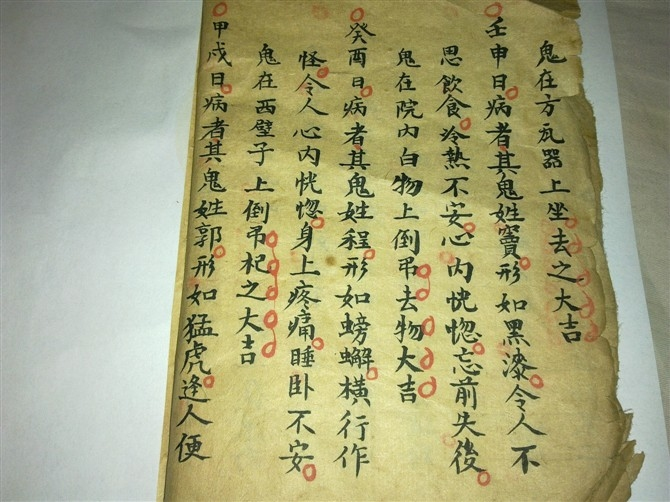 鬼在方瓦器上坐去之大吉
壬申日病者其鬼姓竇形如黑漆令人不
思飲食冷熱不安心内恍惚忘前失後
鬼在院内白物上倒吊去物大吉
癸酉日病者其鬼姓程形如螃蠏橫行作
怪令人心内恍惚身上疼痛睡卧不安
鬼在西壁子上倒吊祀之大吉
甲戍日病者其鬼姓郭形如猛虎逢人便